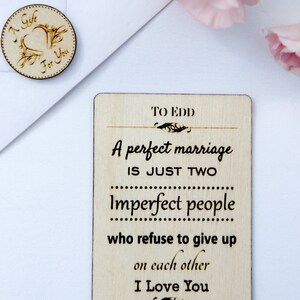 A Gift
For You
To Edd
A perfect marriage
is just two
Imperfect people
who refuse to give up
on each other
I Love You